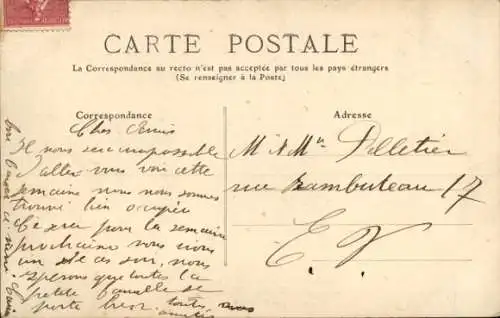 CARTE POSTALE
La Correspondance au recto n'est pas acceptée par tous les pays étrangers
(Se renseigner à la Poste)
Correspondance
Adresse
Cher Amis
Il nous sera impossible
d'aller vous voir cette
semaine nous nous sommes
trouvé bien occupée
Ce sera pour la semaine
prochaine vous nous
un de ces soir, nous
espérons que toutes la
petite famille se
porte bien. toutes nos
amitiés
M & Mme Pelletier
rue Rambuteau 17
E. V.